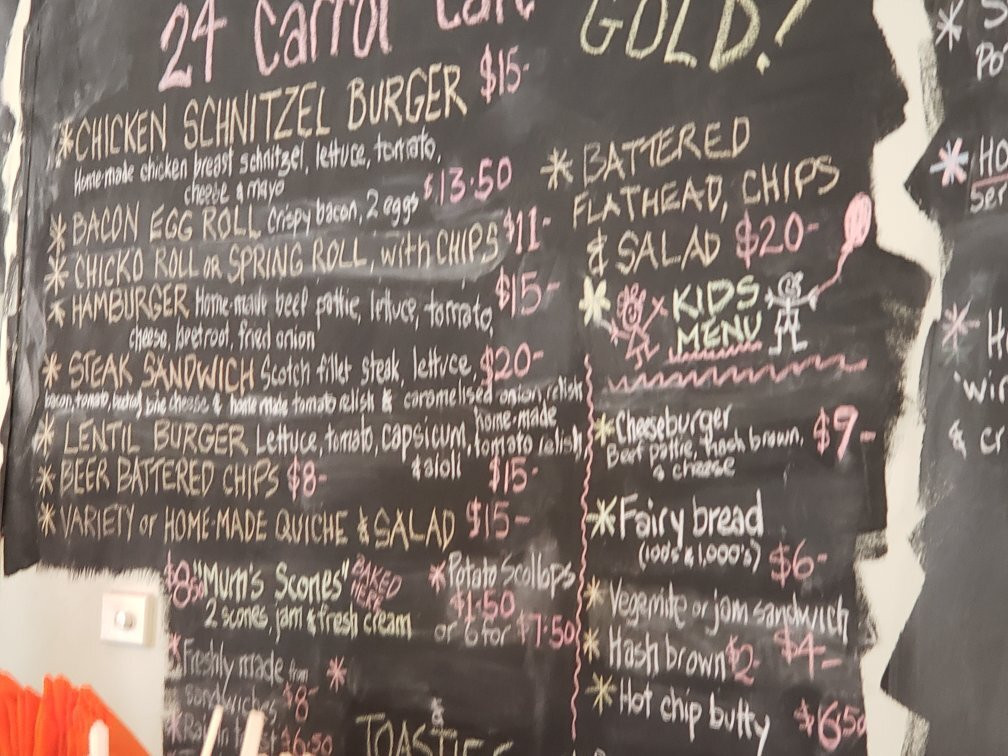 24 Carrot Cafe
GOLD!
*CHICKEN SCHNITZEL BURGER $15-
Home-made chicken breast schnitzel, lettuce, tomato,
cheese & mayo
* BACON EGG ROLL crispy bacon, 2 eggs $13.50
* CHICKO ROLL OR SPRING ROLL, with CHIPS $11-
* HAMBURGER Home-made beef pattie, lettuce, tomato, $15-
cheese, beetroot, fried onion
* STEAK SANDWICH Scotch fillet steak, lettuce, $20-
bacon, tomato, cheese & home made tomato relish & caramelised onion relish
* LENTIL BURGER Lettuce, tomato, capsicum, home-made
tomato relish,
& aioli $15-
* BEER BATTERED CHIPS $8-
* VARIETY of HOME-MADE QUICHE & SALAD $15-
"Mum's Scones" BAKED
HERE
2 scones, jam & fresh cream
*Potato Scollops
$1.50
or 6 for $7.50
Freshly made from *
sandwiches $8-
$6.50
&
TOASTIES
* BATTERED
FLATHEAD, CHIPS
& SALAD $20-
* KIDS
MENU
* Cheeseburger $9-
Beef pattie, hash brown,
& cheese
* Fairy bread
(100's & 1,000's) $6-
* Vegemite or jam sandwich
$4-
* Hash brown $2-
* Hot chip butty $6.50
* S
Po
* Ho
Ser
* H
wic
& cr